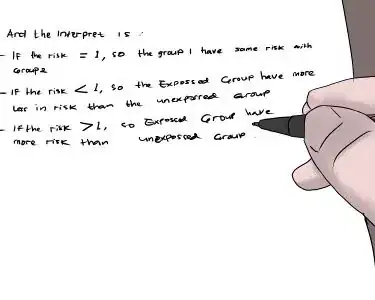 And the Interpret is :
- If the risk = 1, so the group 1 have same risk with
Group 2
- If the risk < 1, so the Exposed Group have more
in risk than the unexposed Group
- If the risk > 1, so Exposed Group have
more risk than unexposed Group.